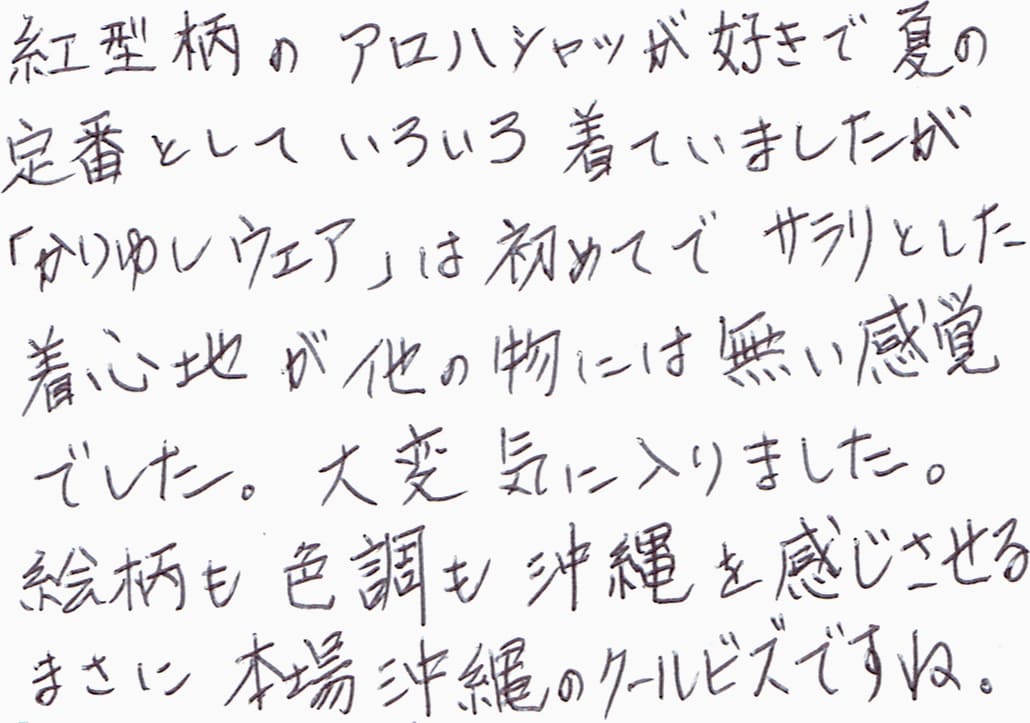 紅型柄のアロハシャツが好きで夏の
定番としていろいろ着ていましたが
「かりゆしウェア」は初めてでサラリとした
着心地が他の物には無い感覚
でした。大変気に入りました。
絵柄も色調も沖縄を感じさせる
まさに本場沖縄のクールビズですね。